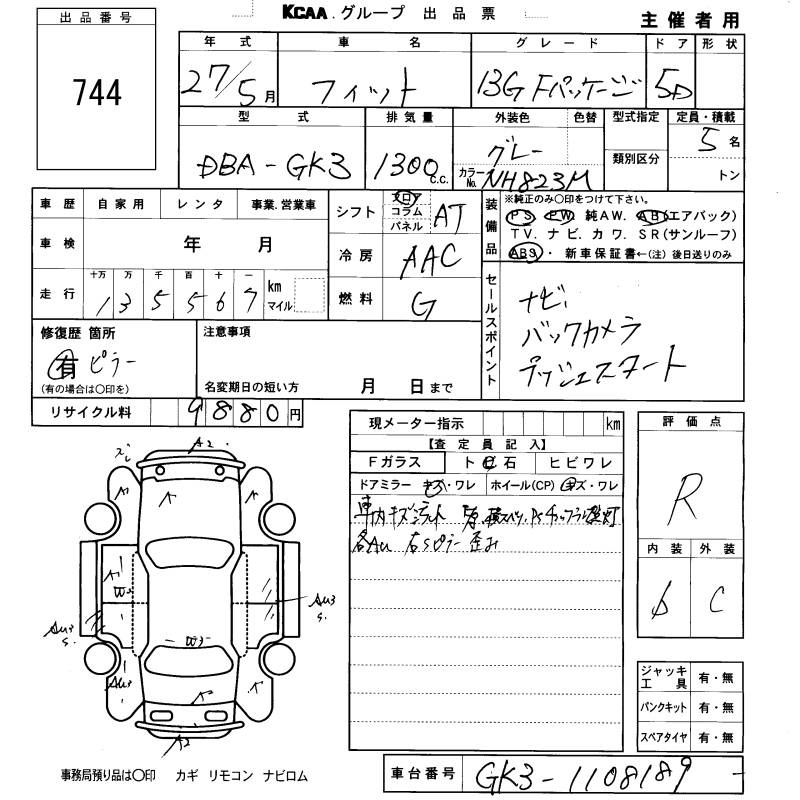 KCAA.グループ 出品票
主催者用
出品番号
744
年式 車名 グレード ドア 形状
27/5月 フィット 13G Fパッケージ 5D
型式 排気量 外装色 色替 型式指定 定員・積載
DBA-GK3 1300c.c. グレー カラーNo. NH823M 類別区分 5名 トン
車歴 自家用 レンタ 事業.営業車
車検 年 月
走行 十万 万 千 百 十 一 km マイル
135567
シフト フロア コラム パネル AT
冷房 AAC
燃料 G
装備品 ※純正のみ〇印をつけて下さい。
PS PW 純AW. AB(エアバック)
TV. ナビ. カワ. SR(サンルーフ)
ABS・ 新車保証書←(注)後日送りのみ
セールスポイント
ナビ,
バックカメラ
プッシュスタート
修復歴 箇所
有 ピラー
(有の場合は〇印を)
注意事項
名変期日の短い方 月 日まで
リサイクル料 9880円
現メーター指示 km
【査定員記入】
Fガラス ト石 ヒビワレ
ドアミラー キズ・ワレ ホイール(CP) キズ・ワレ
各AU 右Sピラー 歪み
評価点
R
内装 外装
C
ジャッキ工具 有・無
パンクキット 有・無
スペアタイヤ 有・無
A2
A
A
A
A
W2
AU3
S.
AU3
S.
W3
AU3
A
A2
事務局預り品は〇印 カギ リモコン ナビロム
車台番号 GK3-1108189